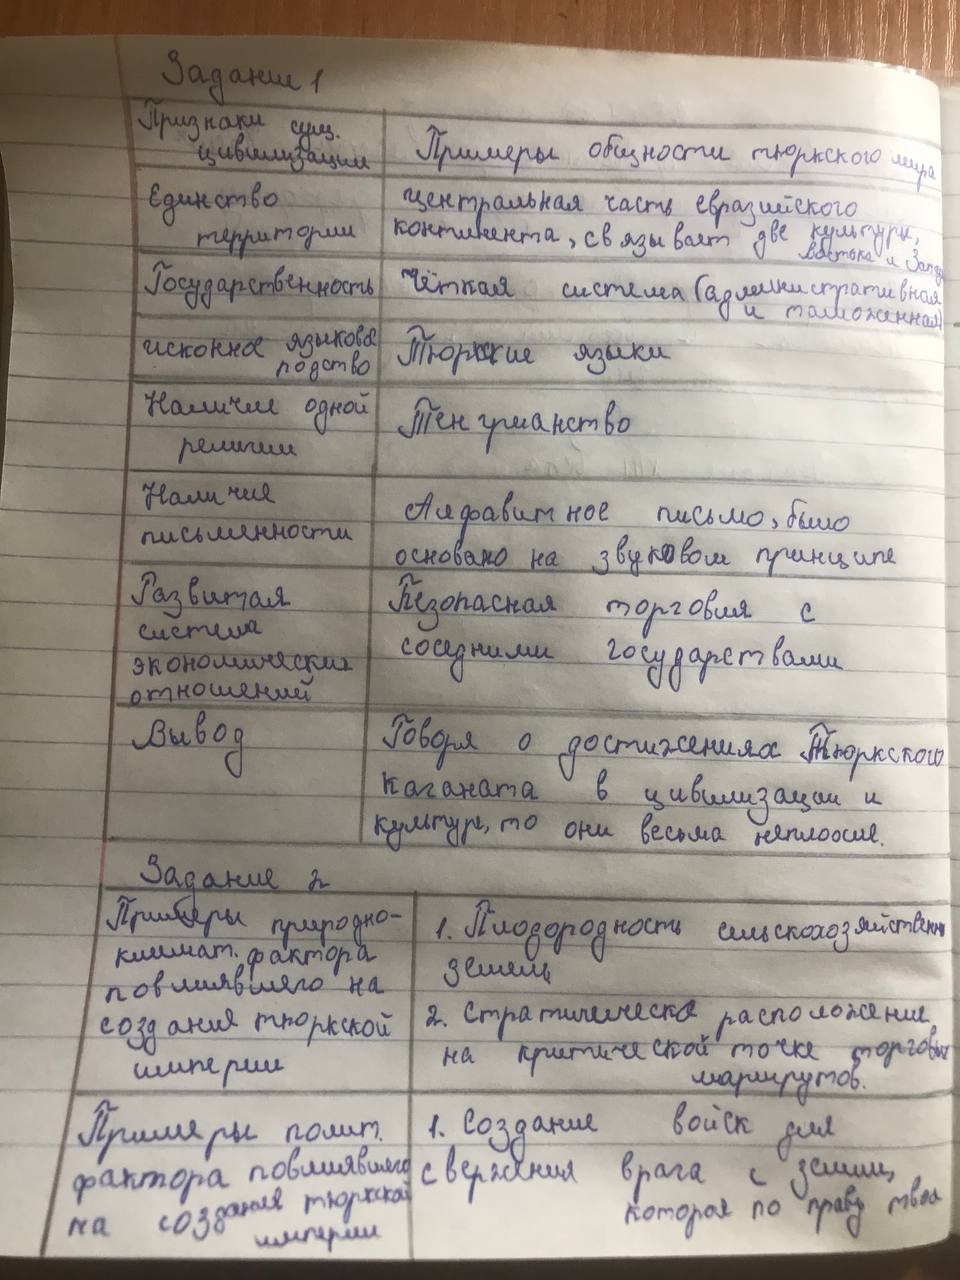 Задание 1
Признаки сущ.
цивилизации
Примеры общности тюркского мира
Единство
территории
центральная часть евразийского
континента, связывает две культуры,
востока и Запада
Государственность
Чёткая система (административная
и таможенная)
исконное языковое
родство
Тюркские языки
Наличие одной
религии
Тенгрианство
Наличие
письменности
Алфавитное письмо, было
основано на звуковом принципе
Развитая
система
экономических
отношений
Безопасная торговля с
соседними государствами
Вывод
Говоря о достижениях Тюркского
каганата в цивилизации и
культур, то они весьма неплохие.
Задание 2
Примеры природно-
климат. фактора
повлиявшего на
создания тюркской
империи
1. Плодородность сельскохозяйственн
земель
2. Стратическое расположение
на критической точке торговых
маршрутов.
Примеры полит.
фактора повлиявшего
на создания тюркской
империи
1. Создание войск для
свержения врага с земли,
которая по праву твоя